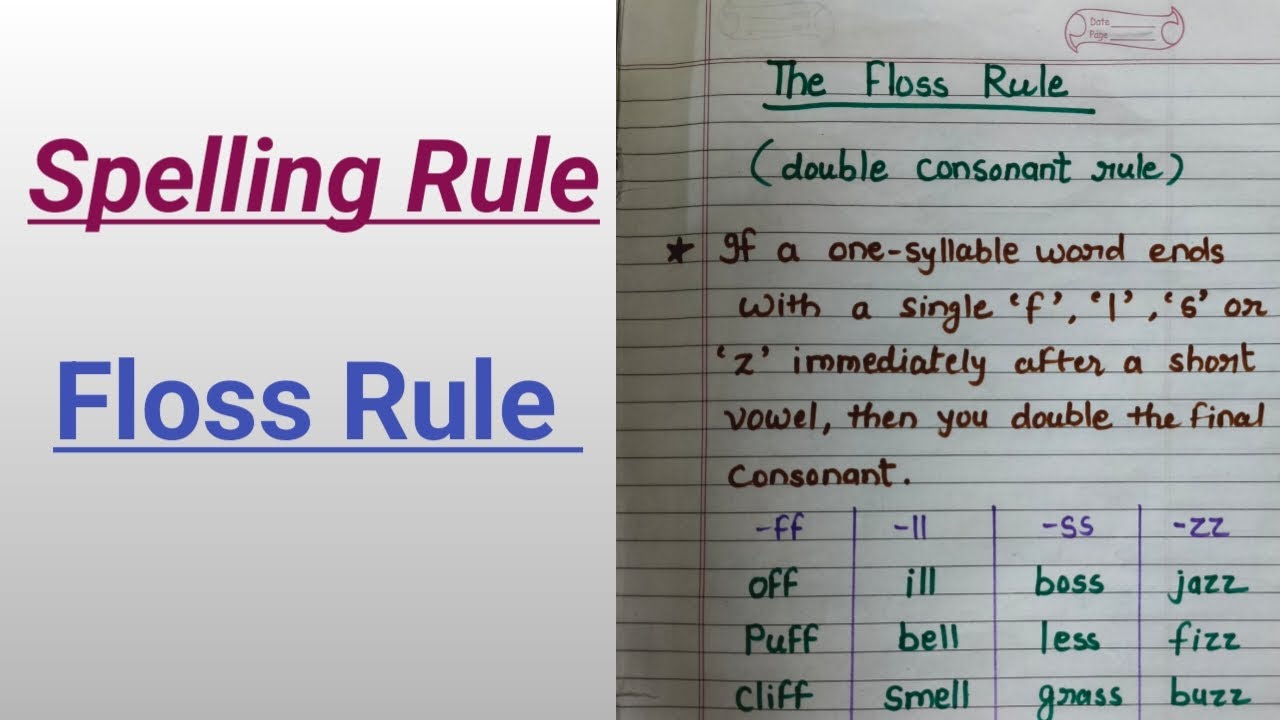 Spelling Rule
Floss Rule
Date
Page
The Floss Rule
(double consonant rule)
★ If a one-syllable word ends
with a single 'f', 'l', 's' or
'z' immediately after a short
vowel, then you double the final
consonant.
-ff -ll -ss -zz
off ill boss jazz
Puff bell less fizz
cliff smell grass buzz